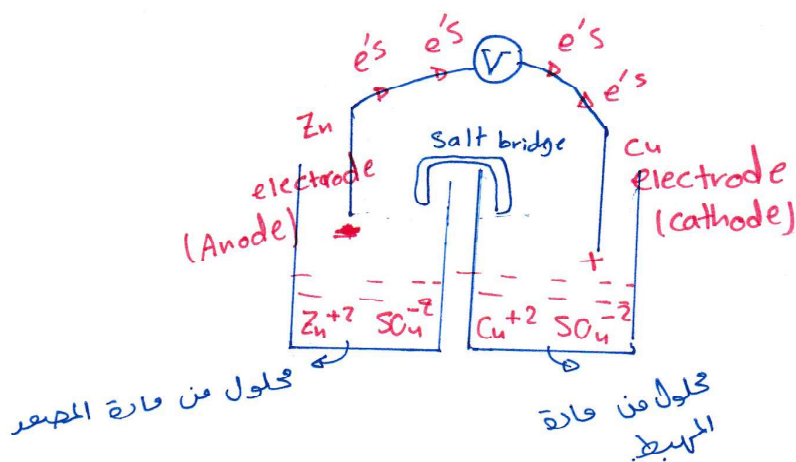 e's e's e's
e's
V
Zn
electrode
(Anode)
Salt bridge
Cu
electrode
(Cathode)
+
Zn+2 SO4-2
Cu+2 SO4-2
محلول من مادة المصعد
محلول من مادة
المهبط